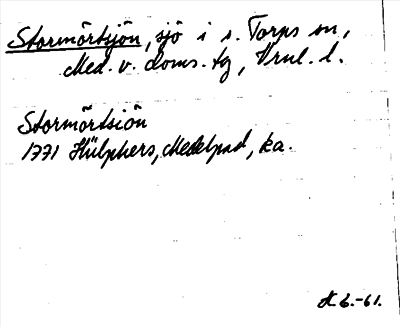 Stormörtsjön, sjö i s. Torps sn,
Med. v. doms. tg, Vrnl. l.
Stormörtsiön
1771 Hülphers, Medelpad, ka.
6.-61.